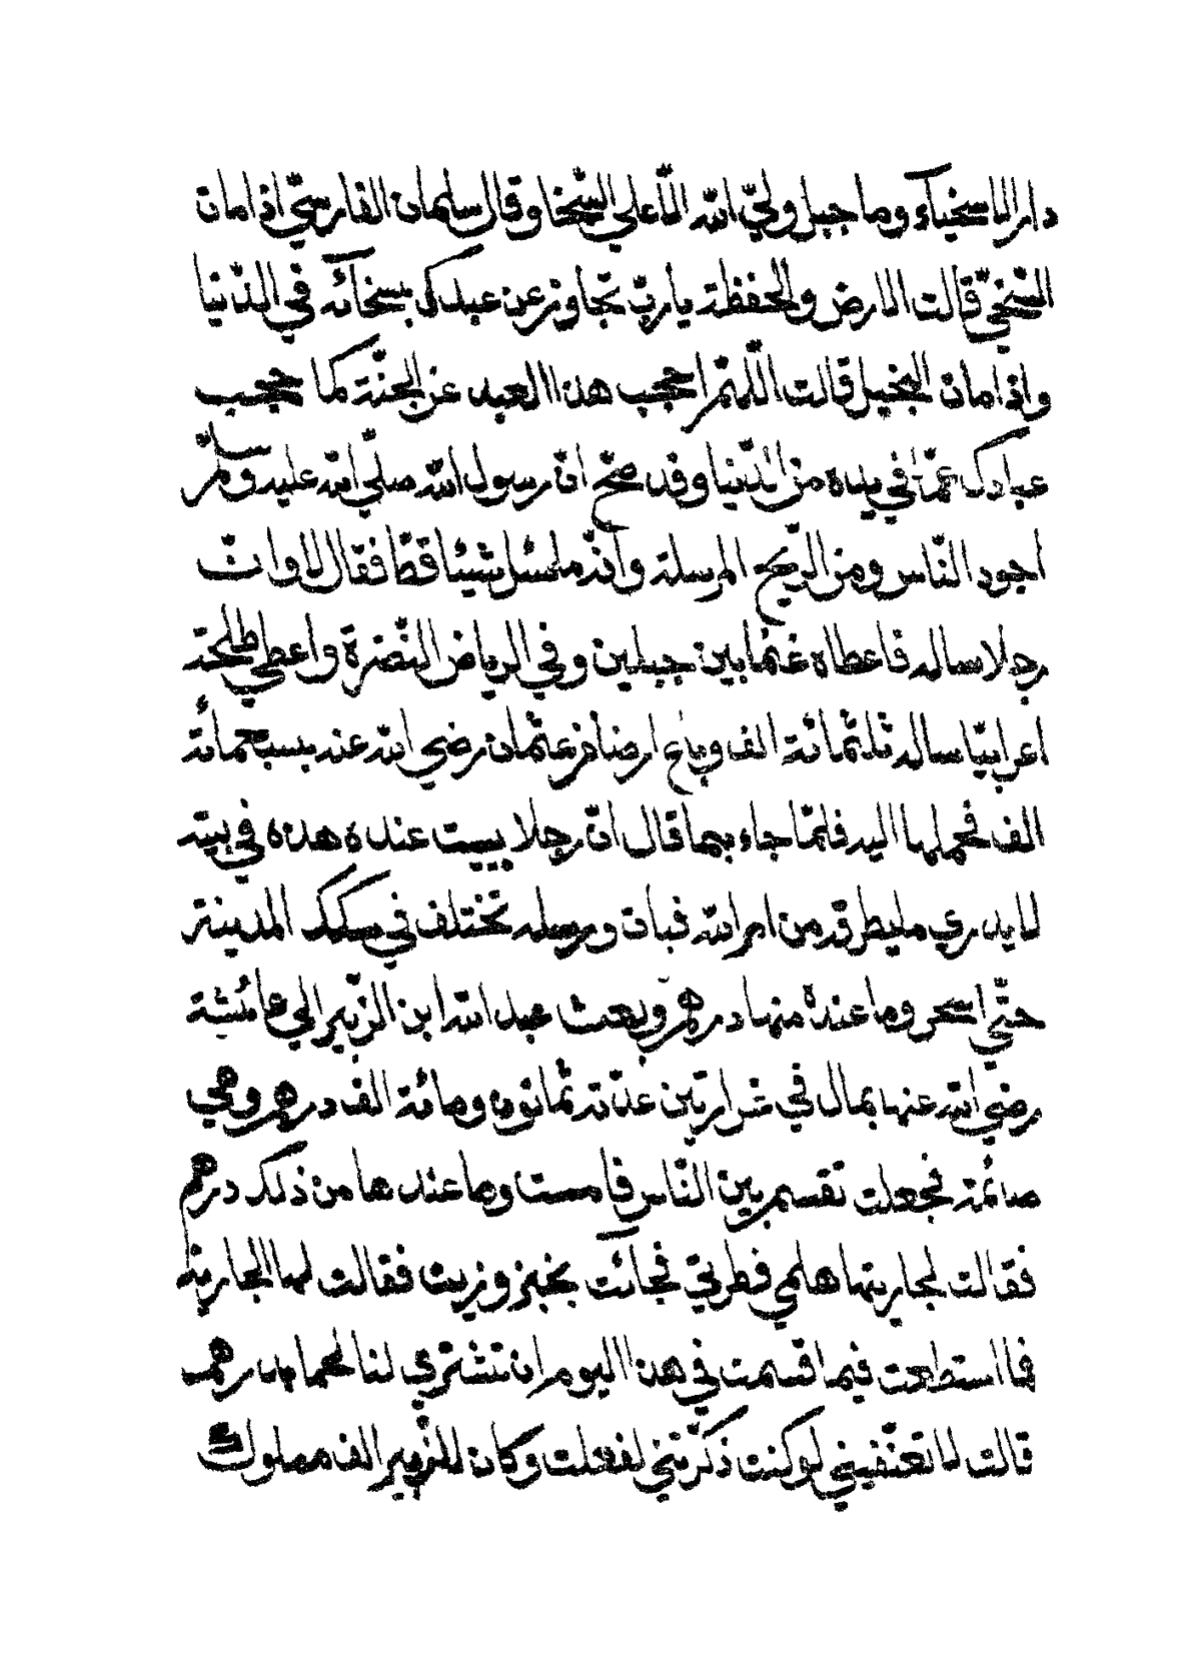 دار الاسخياء وما جبل وليّ الله الّا علي السّخا وقال سليمان الفارسيّ اذا مات
السّخيّ قالت الارض والحفظة يا ربّ تجاوز عن عبدك بسخائه في الدّنيا
واذا مات البخيل قالت اللّهمّ احجب هذا العبد عن الجنّة كما حجب
عبادك عمّا في يده من الدّنيا وقد صحّ انّ رسول الله صلّي الله عليه وسلّم
اجود النّاس ومن الرّيح المرسلة وانّه ما سئل شيئا قطّ فقال لا وات
رجلا ساله فاعطاه غنما بين جبلين وفي الرياض النّضرة واعطي طلحة
اعرابيّا ساله ثلثمائة الف وباع ارضا من عثمان رضي الله عنه بسبعمائة
الف فحملها اليه فلمّا جاء بها قال انّ رجلا يبيت عنده هذه في بيته
لا يدري ما يطرقه من امر الله فبات ورسله تختلف في سكك المدينة
حتّي اسحر وما عنده منها درهم وبعث عبد الله ابن الزّبير الي عائشة
رضي الله عنها بمال في غرارتين عدّته ثمانون ومائة الف درهم وهي
صائمة فجعلت تقسم بين النّاس فامست وما عندها من ذلك درهم
فقالت لجاريتها هلمي فطرتي فجائت بخبز وزيت فقالت لها الجارية
فما استطعت فيما اقسمت في هذا اليوم ان تشتري لنا لحما بدرهم
قالت لا تعنّفيني لو كنت ذكّرتني لفعلت وكان للزّبير الف مملوك